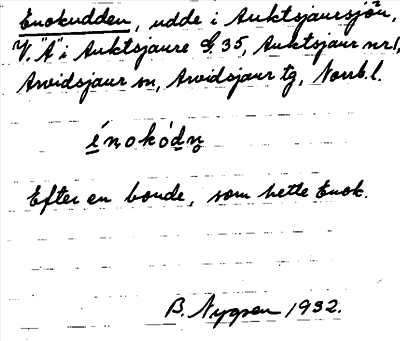 Enokudden, udde i Auktsjaursjön,
V. "A" i Auktsjaure § 35, Auktsjaur nr 1,
Arvidsjaur sn, Arvidsjaur tg, Norrb. l.
énokódn̥
Efter en bonde, som hette Enok.
B. Nygren 1932.